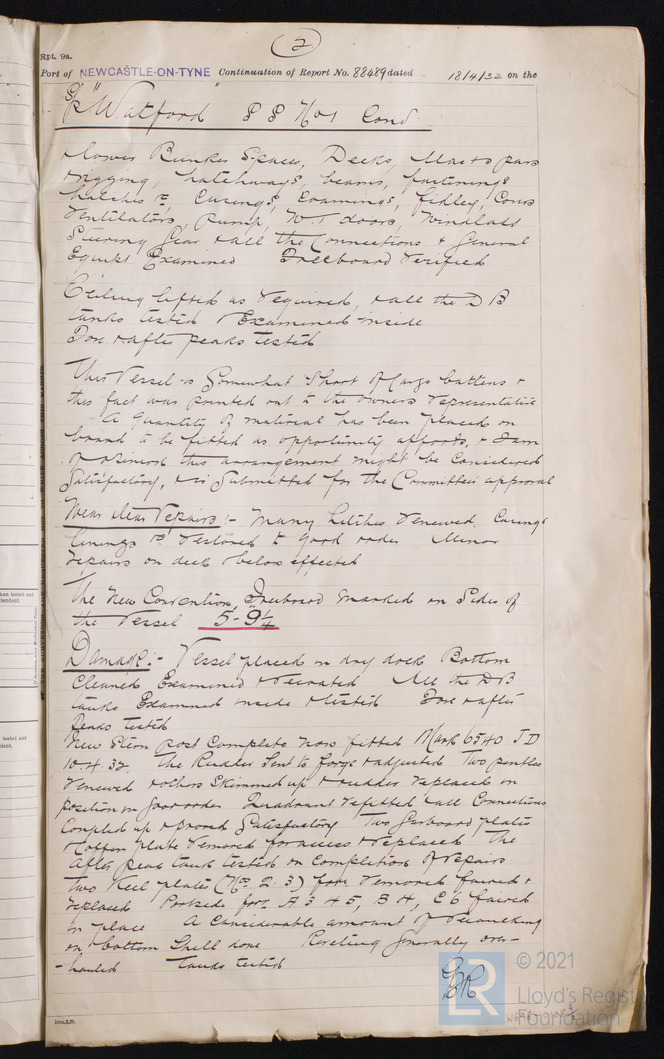 2
Rpt. 9a.
Port of NEWCASTLE-ON-TYNE Continuation of Report No. 88489 dated 18/4/32 on the
S/S "Watford" S S No 1 Cond
Lower Bunker Spaces, Decks, Masts spars
rigging, hatchways, beams, fastenings
hatches &c, Casings, Coamings, fidley, Cowls
Ventilators, Pump, W.T. doors, Windlass
Steering Gear, & all the Connections & General
Equipt Examined Freeboard Verified
Ceiling lifted as required, & all the D B
tanks tested & Examined inside
Fore & after peaks tested
This Vessel is Somewhat Short of Cargo battens &
this fact was pointed out to the owners representative
A quantity of material has been placed on
board to be fitted as opportunity affords, & I am
of opinion this arrangement might be Considered
Satisfactory, & is Submitted for the Committees approval
Wear & tear Repairs :- Many hatches renewed. Casings
linings &c restored to good order Minor
repairs on deck & below effected
The New Convention, Freeboard marked on Sides of
the Vessel 5-9¼
Damage :- Vessel placed in dry dock Bottom
Cleaned Examined & recoated All the D B
tanks Examined inside & tested Fore & after
Peaks tested
New Stern post Complete now fitted Mark 6540 J D
10.4.32. The Rudder Sent to forge & adjusted Two pintles
renewed & others Skimmed up & rudder replaced in
position in good order Quadrant refitted & all Connections
Coupled up & proved Satisfactory Two Garboard plates
& Coffin plate removed for access & replaced The
After peak tank tested on Completion of repairs
Two Keel plates (Nos 2. 3) for'd removed faired &
replaced Portside for'd A 3 4 5, B 4, C 6 faired
in place A Considerable amount of recaulking
on bottom Shell done Riveting generally over-
-hauled Tanks tested
LR
© 2021
Lloyd's Register
Foundation